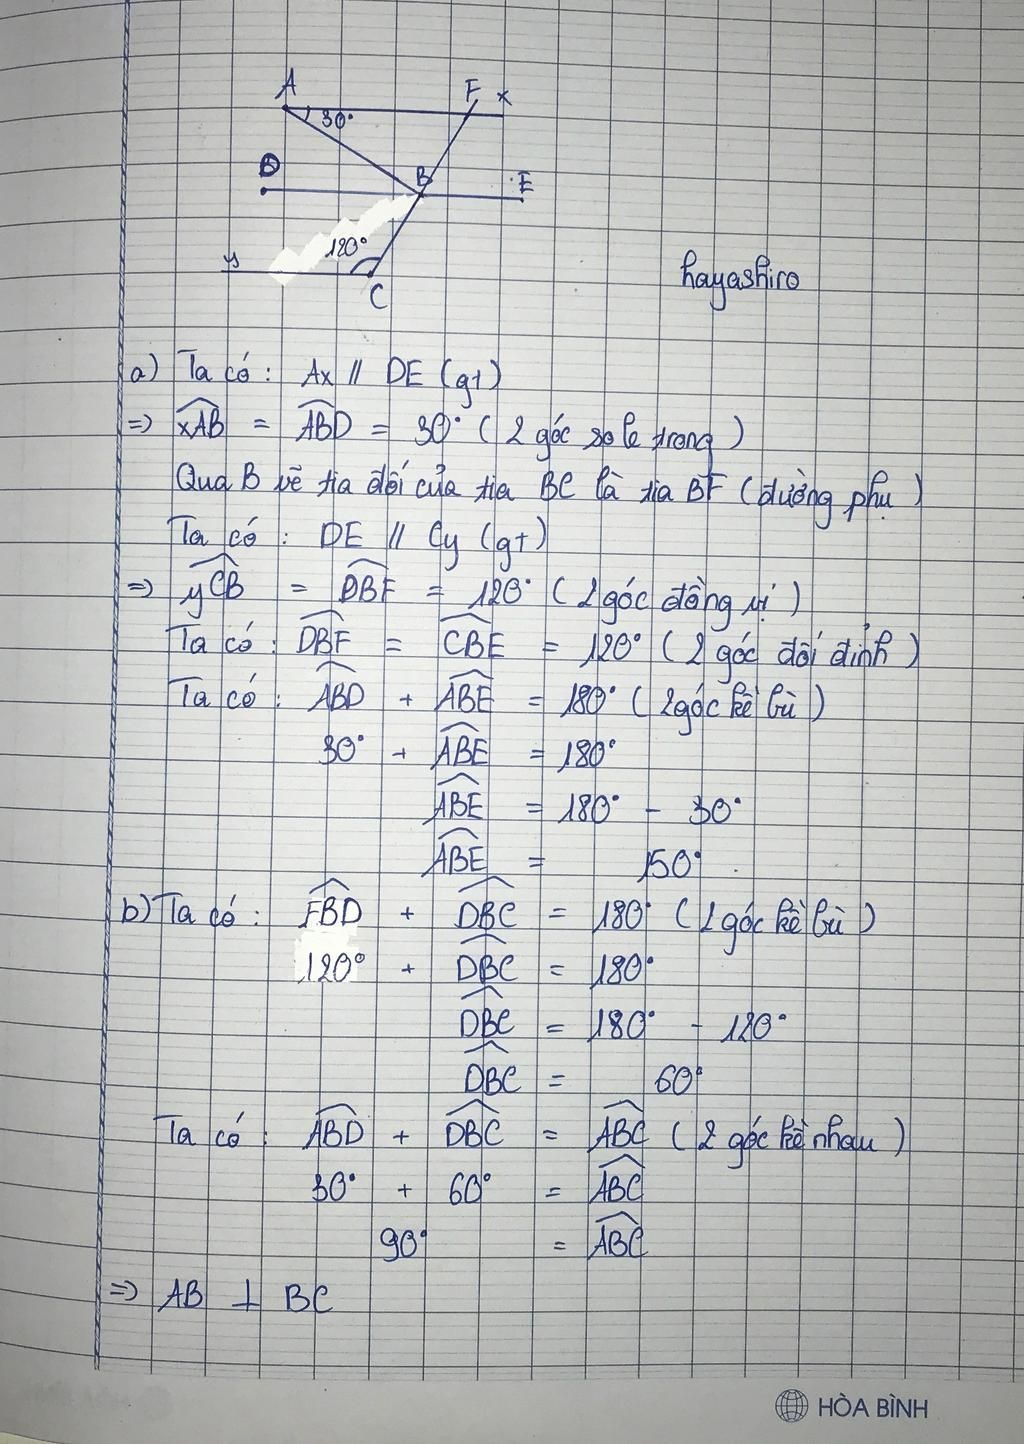 A F x
30°
D B E
120°
y
C
hayashiro
a) Ta có: Ax // DE (gt)
=> xAB = ABD = 30° (2 góc so le trong)
Qua B vẽ tia đối của tia BC là tia BF (đường phụ)
Ta có: DE // Cy (gt)
=> yCB = DBF = 120° (2 góc đồng vị)
Ta có: DBF = CBE = 120° (2 góc đối đỉnh)
Ta có: ABD + ABE = 180° (2 góc kề bù)
30° + ABE = 180°
ABE = 180° - 30°
ABE = 150°
b) Ta có: FBD + DBC = 180° (2 góc kề bù)
120° + DBC = 180°
DBC = 180° - 120°
DBC = 60°
Ta có: ABD + DBC = ABC (2 góc kề nhau)
30° + 60° = ABC
90° = ABC
=> AB ⊥ BC
HÒA BÌNH